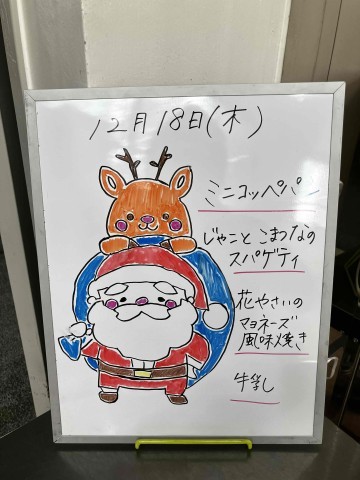 12月18日(木)
ミニコッペパン
じゃことこまつなの
スパゲティ
花やさいの
マヨネーズ
風味焼き
牛乳